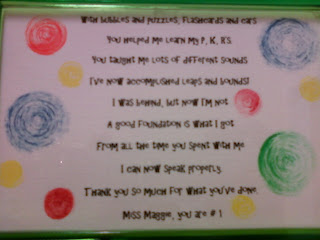 With bubbles and puzzles, flashcards and ears
You helped me learn my P, K, R's.
You taught me lots of different sounds
I've now accomplished leaps and bounds!
I was behind, but now I'm not
A good foundation is what I got
From all the time you spent with me
I can now speak properly.
Thank you so much for what you've done.
Miss Maggie, you are # 1